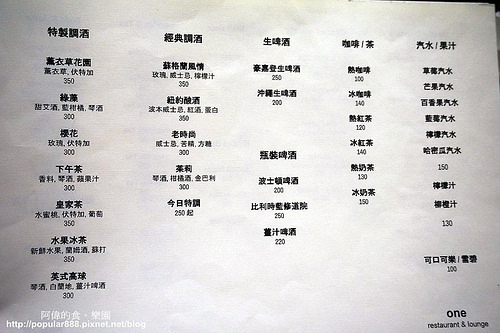 特製調酒
薰衣草花園
薰衣草, 伏特加
350
綠藻
甜艾酒, 藍柑橘, 琴酒
300
櫻花
玫瑰, 伏特加
300
下午茶
香料, 琴酒, 蘋果汁
300
皇家茶
水蜜桃, 伏特加, 葡萄
350
水果冰茶
新鮮水果, 蘭姆酒, 蘇打
350
英式高球
琴酒, 白蘭地, 薑汁啤酒
300
經典調酒
蘇格蘭風情
玫瑰, 威士忌, 檸檬汁
350
紐約酸酒
波本威士忌, 紅酒, 蛋白
350
老時尚
威士忌, 苦精, 方糖
300
茉莉
琴酒, 柑橘酒, 金巴利
300
今日特調
250 起
生啤酒
豪嘉登生啤酒
250
沖繩生啤酒
200
瓶裝啤酒
波士頓啤酒
200
比利時藍修道院
250
薑汁啤酒
220
咖啡 / 茶
熱咖啡
100
冰咖啡
140
熱紅茶
120
冰紅茶
140
熱奶茶
130
冰奶茶
150
汽水 / 果汁
草莓汽水
芒果汽水
百香果汽水
藍莓汽水
檸檬汽水
哈密瓜汽水
150
檸檬汁
柳橙汁
130
可口可樂 / 雪碧
100
one
restaurant & lounge
阿偉的食。樂園
http://popular888.pixnet.net/blog